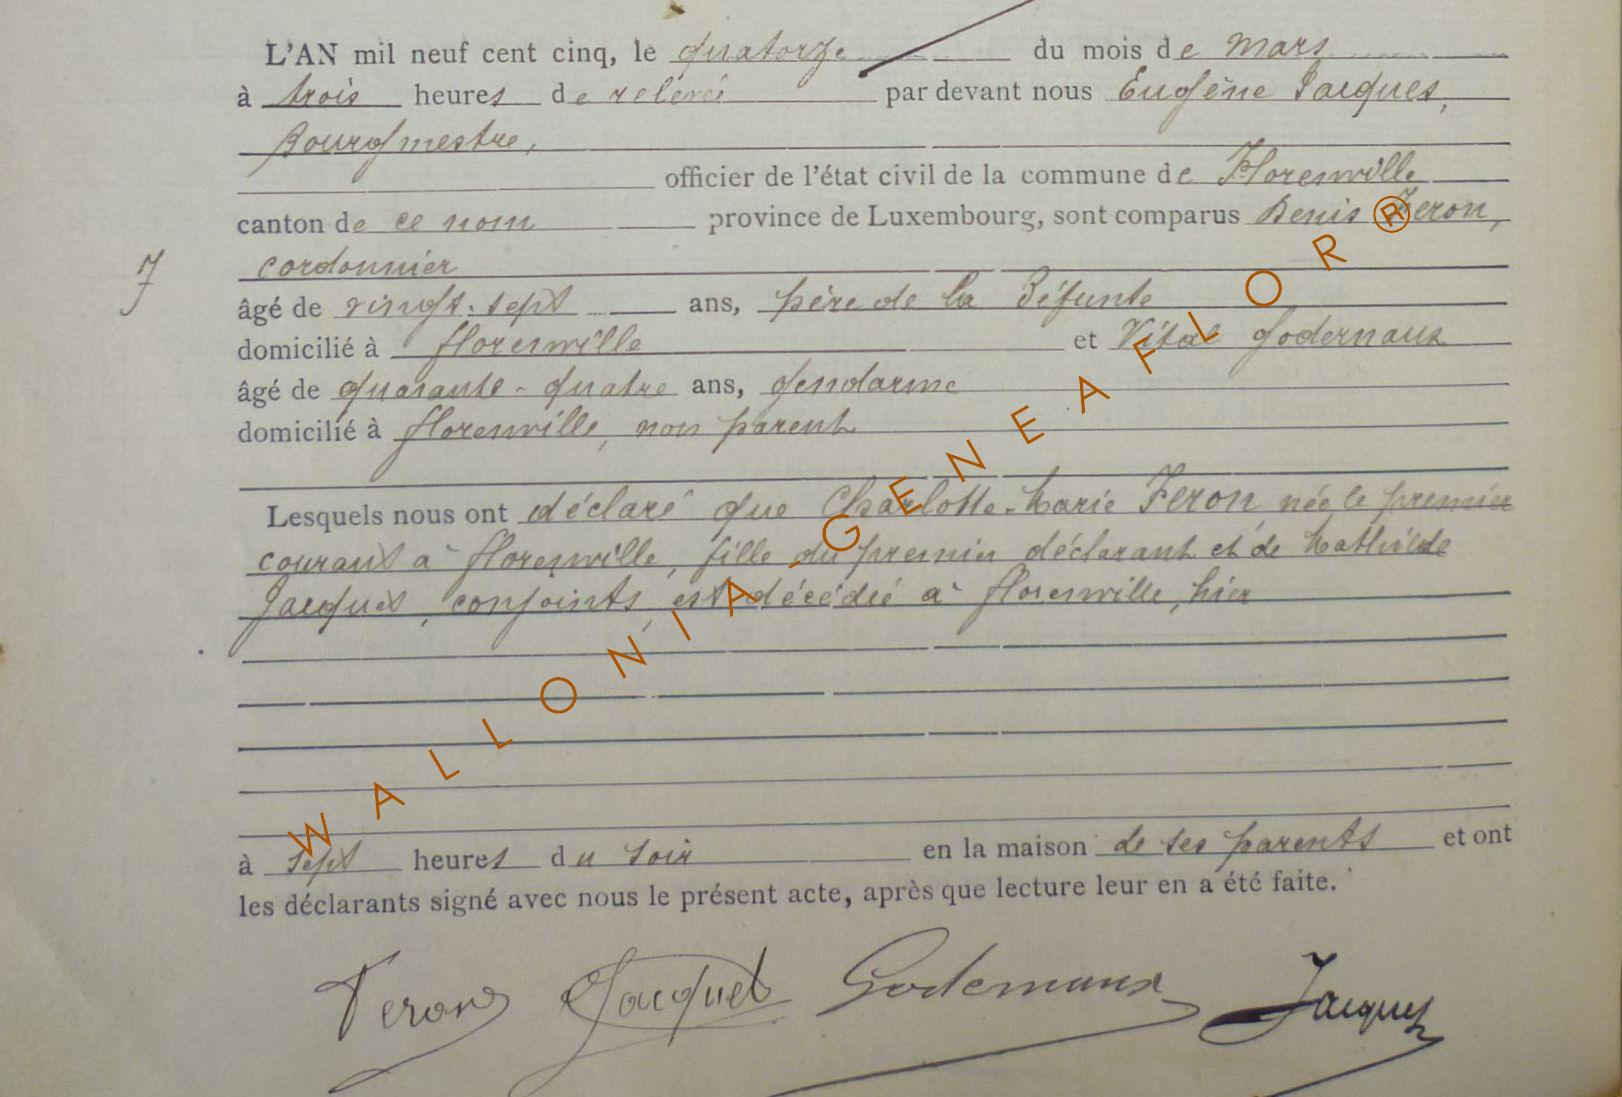 L'AN mil neuf cent cinq, le quatorze du mois de mars
à trois heures de relevée par devant nous Eugène Jacques,
Bourgmestre,
officier de l'état civil de la commune de Florenville
canton de ce nom province de Luxembourg, sont comparus Denis Feron,
cordonnier
7
âgé de vingt-sept ans, père de la Défunte
domicilié à florenville et Vital Godernaux
âgé de quarante-quatre ans, gendarme
domicilié à florenville, non parent
Lesquels nous ont déclaré que Charlotte-Marie Feron née le premier
courant à florenville, fille du premier déclarant et de Mathilde
Jacquet, conjoints, est décédée à florenville, hier
à sept heures du soir en la maison de ses parents et ont
les déclarants signé avec nous le présent acte, après que lecture leur en a été faite.
Feron Jacquet Godernaux Jacques
WALLONIA-GENEAFLOR®